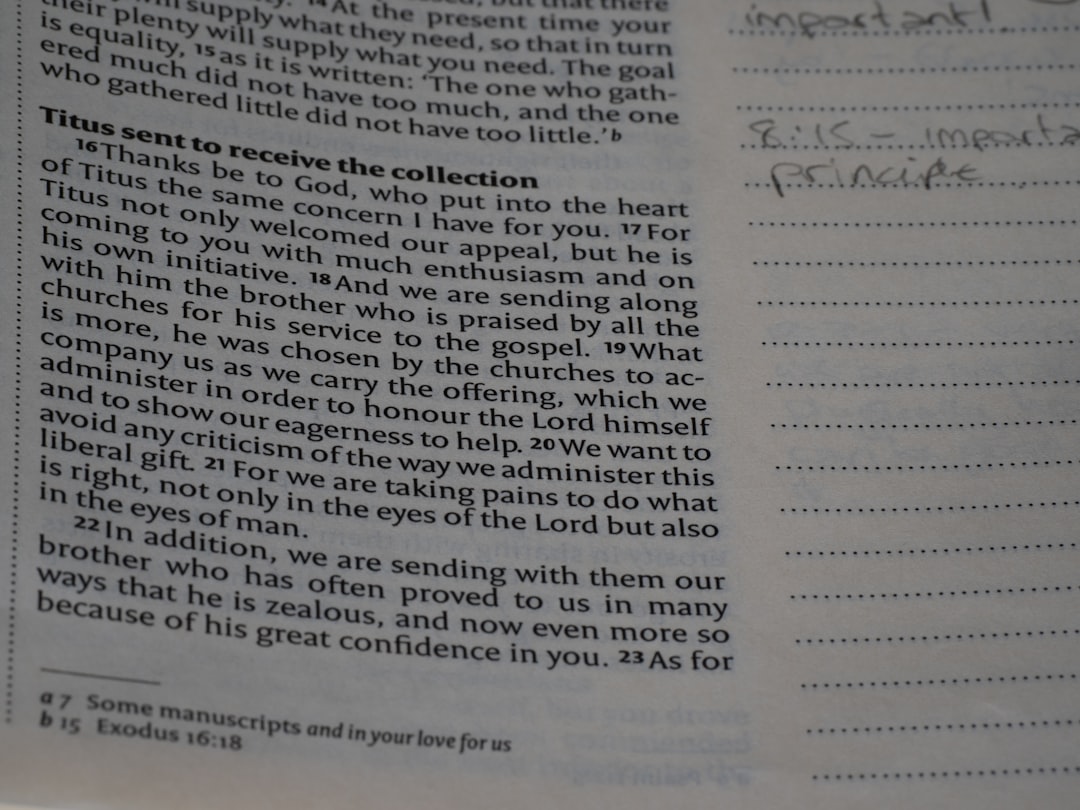 14 At the present time your
supply what they need, so that in turn
their plenty will supply what you need. The goal
is equality, 15 as it is written: 'The one who gath-
ered much did not have too much, and the one
who gathered little did not have too little.' b
Titus sent to receive the collection
16 Thanks be to God, who put into the heart
of Titus the same concern I have for you. 17 For
Titus not only welcomed our appeal, but he is
coming to you with much enthusiasm and on
his own initiative. 18 And we are sending along
with him the brother who is praised by all the
churches for his service to the gospel. 19 What
is more, he was chosen by the churches to ac-
company us as we carry the offering, which we
administer in order to honour the Lord himself
and to show our eagerness to help. 20 We want to
avoid any criticism of the way we administer this
liberal gift. 21 For we are taking pains to do what
is right, not only in the eyes of the Lord but also
in the eyes of man.
22 In addition, we are sending with them our
brother who has often proved to us in many
ways that he is zealous, and now even more so
because of his great confidence in you. 23 As for
a 7 Some manuscripts and in your love for us
b 15 Exodus 16:18
important!
8:15 - importa
principle